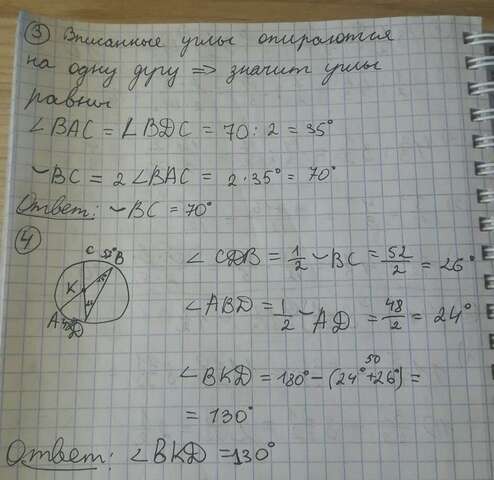 ③ Вписанные углы опираются
на одну дугу => значит углы
равны
∠BAC = ∠BDC = 70:2 = 35°
◡BC = 2∠BAC = 2·35° = 70°
Ответ: ◡BC = 70°
④
C 52° B
K
A 48° D
∠CDB = 1/2 ◡BC = 52/2 = 26°
∠ABD = 1/2 ◡AD = 48/2 = 24°
50
∠BKD = 180° - (24° + 26°) =
= 130°
Ответ: ∠BKD = 130°